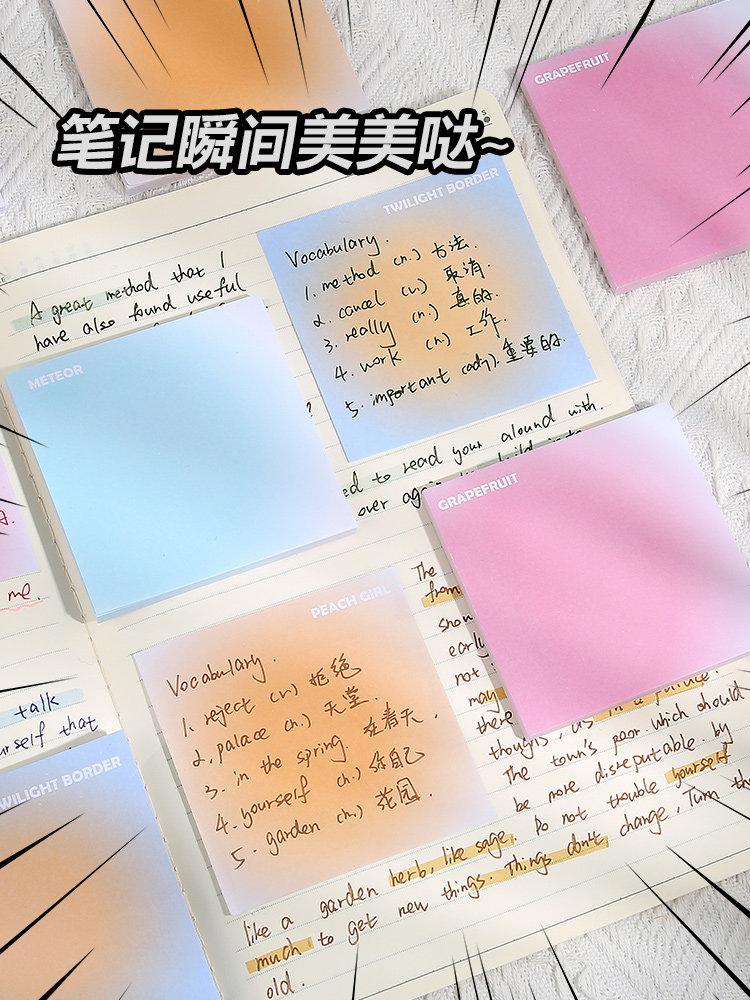 GRAPEFRUIT
笔记瞬间美美哒~
TWILIGHT BORDER
Vocabulary.
1. method (n.) 方法.
2. cancel (v.) 取消
3. really (n.) 真的.
4. work (n.) 工作.
5. important (adj.) 重要的.
A great method that I
have also found useful
METEOR
ed to read your alound with.
over again
GRAPEFRUIT
PEACH GIRL
Vocabulary.
1. reject (v.) 拒绝
2. palace (n.) 天堂.
3. in the spring. 在春天.
4. yourself (n.) 你自己
5. garden (n.) 花园.
me.
talk
urself that
TWILIGHT BORDER
The
from
show
early
not
may
there
thought, as in a palace.
The town's poor which should
be more disreputable. by
Do not trouble yourself
change, Turn the
like a garden herb, like sage. Things don't
much to get new things.
old.